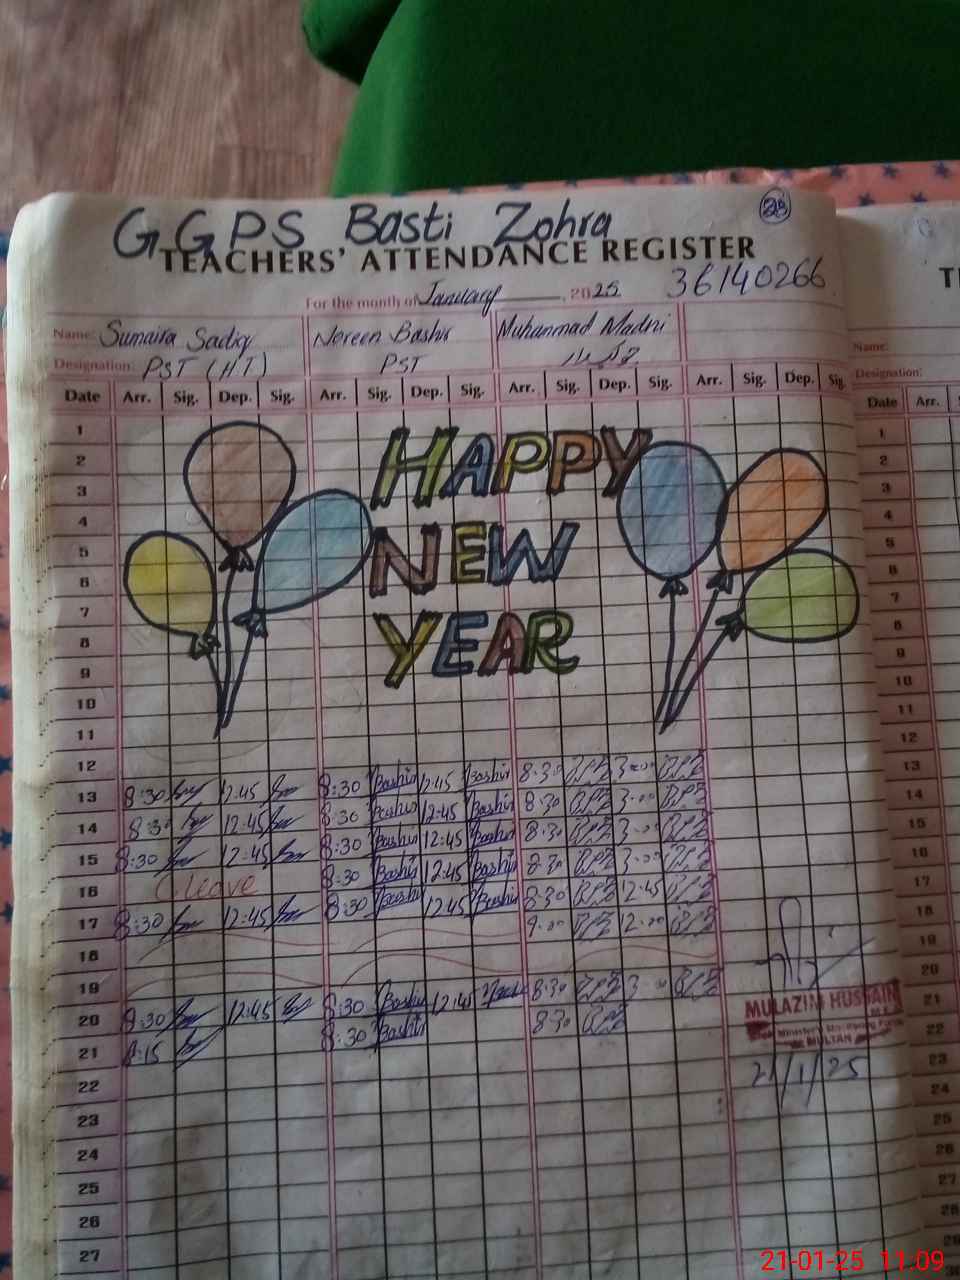 28
GGPS Basti Zohra
TEACHERS' ATTENDANCE REGISTER
36140266
For the month of January, 2025
Name: Sumaira Sadiq Noreen Bashir Muhammad Madni
Name:
Designation: PST (HT) PST
Designation:
Date Arr. Sig. Dep. Sig. Arr. Sig. Dep. Sig. Arr. Sig. Dep. Sig. Arr. Sig. Dep. Sig. Date Arr.
1 1
2 HAPPY 2
3 3
4 4
5 NEW 5
6 6
7 7
8 YEAR 8
9 9
10 10
11 11
12 12
13 8:30 12:45 8:30 Bashir 12:45 Bashir 8:30 3:00 13
14 8:30 12:45 8:30 Bashir 12:45 Bashir 8:30 3:00 14
15 8:30 12:45 8:30 Bashir 12:45 Bashir 8:30 3:00 15
16 C leave 8:30 Bashir 12:45 Bashir 8:30 3:00 16
17 8:30 12:45 8:30 Bashir 12:45 Bashir 8:30 12:45 17
18 9:00 12:00 18
19 19
20 8:30 12:45 8:30 Bashir 12:45 8:30 3:00 20
21 8:15 8:30 Bashir 8:30 21
MULAZIM HUSSAIN
MULTAN
22 22
21/1/25
23 23
24 24
25 25
26 26
27 27
28
21-01-25 11:09